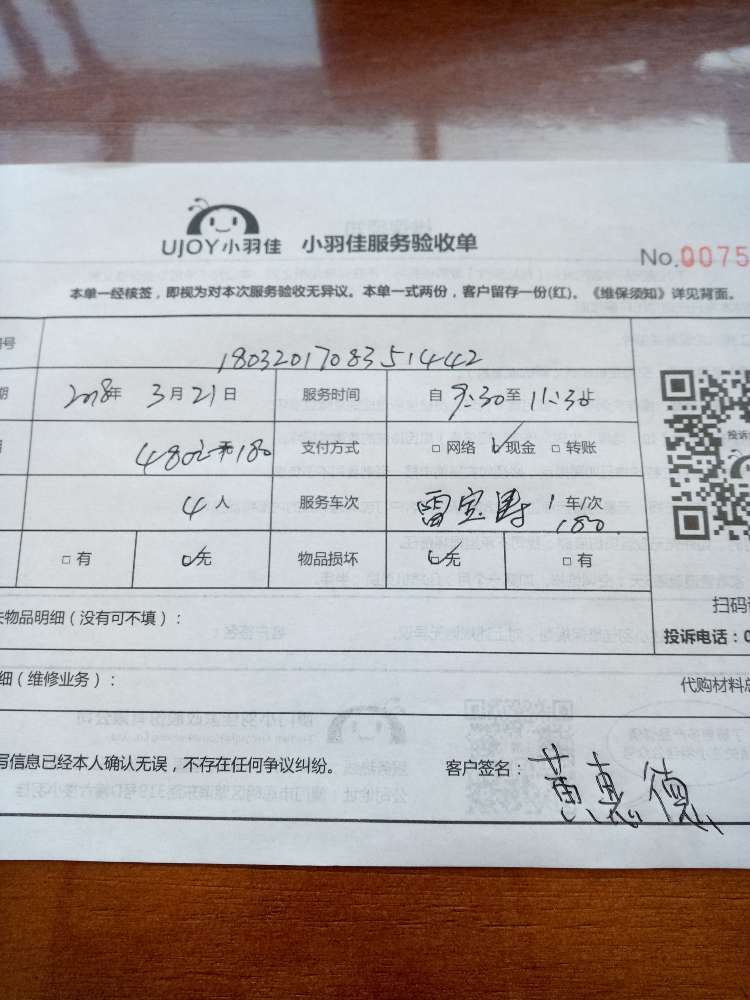 UJOY小羽佳 小羽佳服务验收单
No.0075
本单一经核签，即视为对本次服务验收无异议。本单一式两份，客户留存一份(红)。《维保须知》详见背面。
号 1803201708351442
期 2018年 3月21日 服务时间 自 9:30至 11:30止
480 180 支付方式 □ 网络 ☑现金 □ 转账
投诉
4人 服务车次 1 车/次
180
□ 有 ☑无 物品损坏 ☑无 □ 有
扫码
失物品明细（没有可不填）：
投诉电话：0
细（维修业务）：
代购材料总
写信息已经本人确认无误，不存在任何争议纠纷。 客户签名： 黄惠德